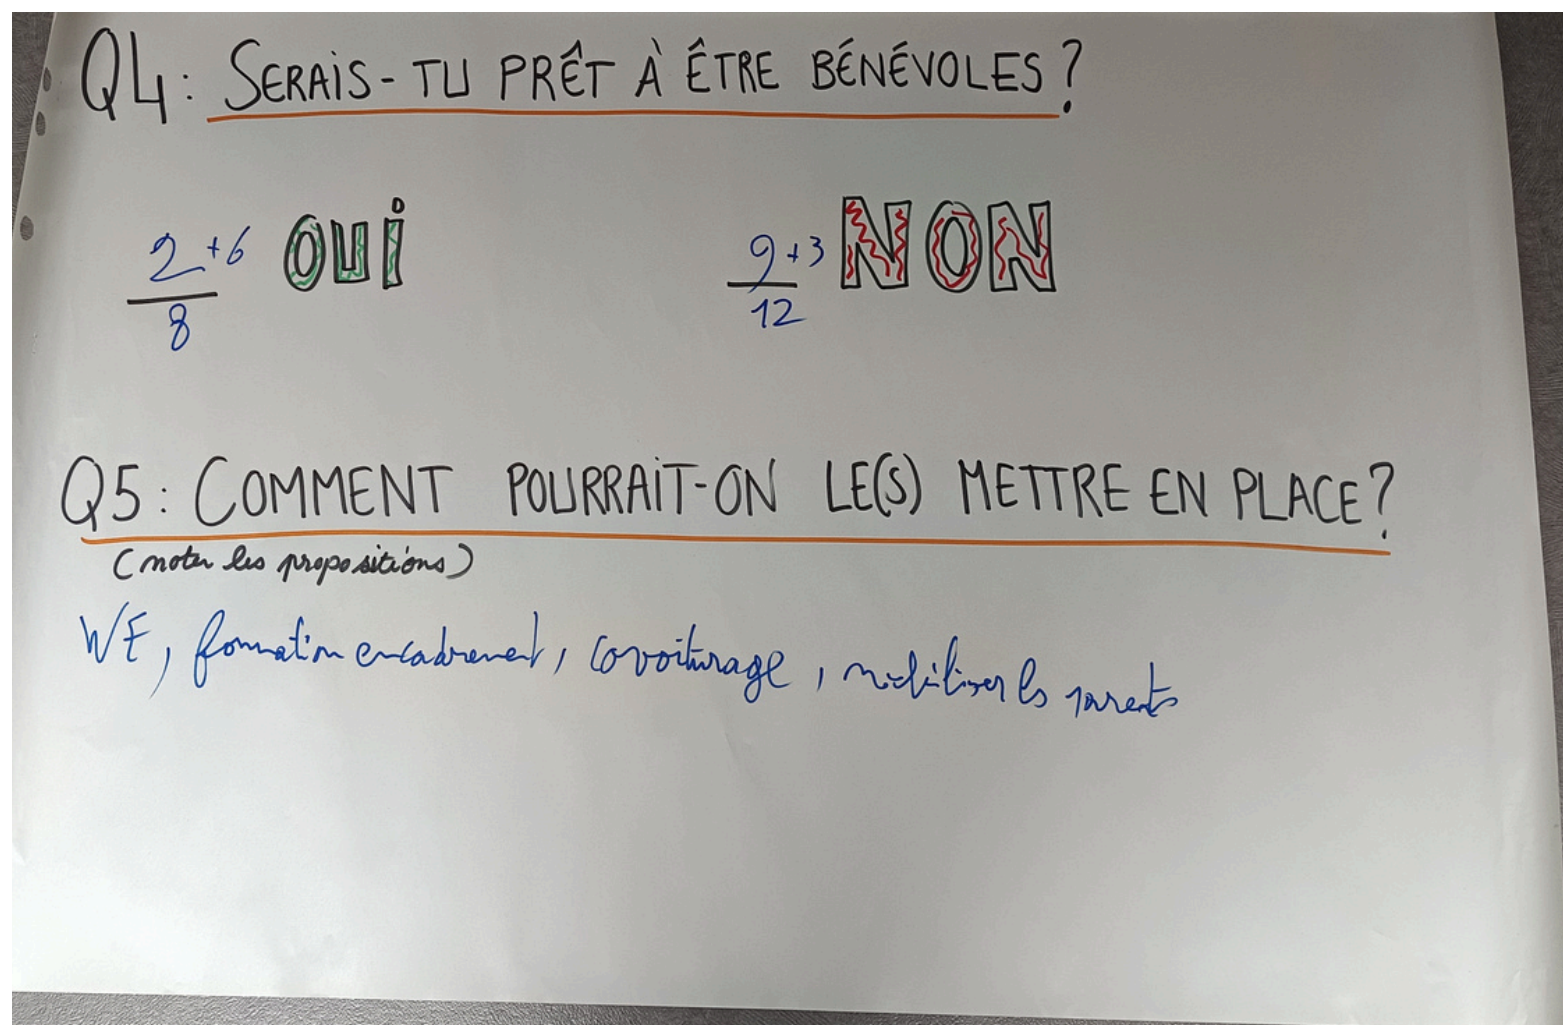 Q4 : SERAIS-TU PRÊT À ÊTRE BÉNÉVOLES ?
2 + 6 OUI 9 + 3 NON
8 12
Q5 : COMMENT POURRAIT-ON LE(S) METTRE EN PLACE ?
(noter les propositions)
WE, formation encadrement, covoiturage, mobiliser les parents